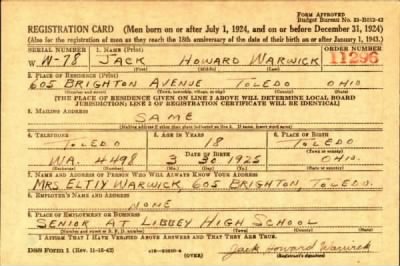 FORM APPROVED
REGISTRATION CARD (Men born on or after July 1, 1924, and on or before December 31, 1924)
(Also for the registration of men as they reach the 18th anniversary of the date of their birth on or after January 1, 1943.)
SERIAL NUMBER 1. NAME (Print) ORDER NUMBER
W. N-78 JACK HOWARD WARWICK 11296
(First) (Middle) (Last)
2. PLACE OF RESIDENCE (Print)
605 BRIGHTON AVENUE TOLEDO OHIO
(Number and street) (Town, township, village, or city) (County) (State)
[THE PLACE OF RESIDENCE GIVEN ON LINE 2 ABOVE WILL DETERMINE LOCAL BOARD
JURISDICTION; LINE 2 OF REGISTRATION CERTIFICATE WILL BE IDENTICAL]
3. MAILING ADDRESS
SAME
[Mailing address if other than place indicated on line 2. If same, insert word same]
4. TELEPHONE 5. AGE IN YEARS 6. PLACE OF BIRTH
TOLEDO 18 TOLEDO
DATE OF BIRTH (Town or county)
WA. 4498 3 30 1925 OHIO.
(Exchange) (Number) (Mo.) (Day) (Yr.) (State or country)
7. NAME AND ADDRESS OF PERSON WHO WILL ALWAYS KNOW YOUR ADDRESS
MRS. ELTIY WARWICK 605 BRIGHTON, TOLEDO.
8. EMPLOYER'S NAME AND ADDRESS
NONE
9. PLACE OF EMPLOYMENT OR BUSINESS
SENIOR AT LIBBEY HIGH SCHOOL
(Number and street or R. F. D. number) (Town) (County) (State)
I AFFIRM THAT I HAVE VERIFIED ABOVE ANSWERS AND THAT THEY ARE TRUE.
DSS FORM 1 (Rev. 11-16-42) (OVER) Jack Howard Warwick